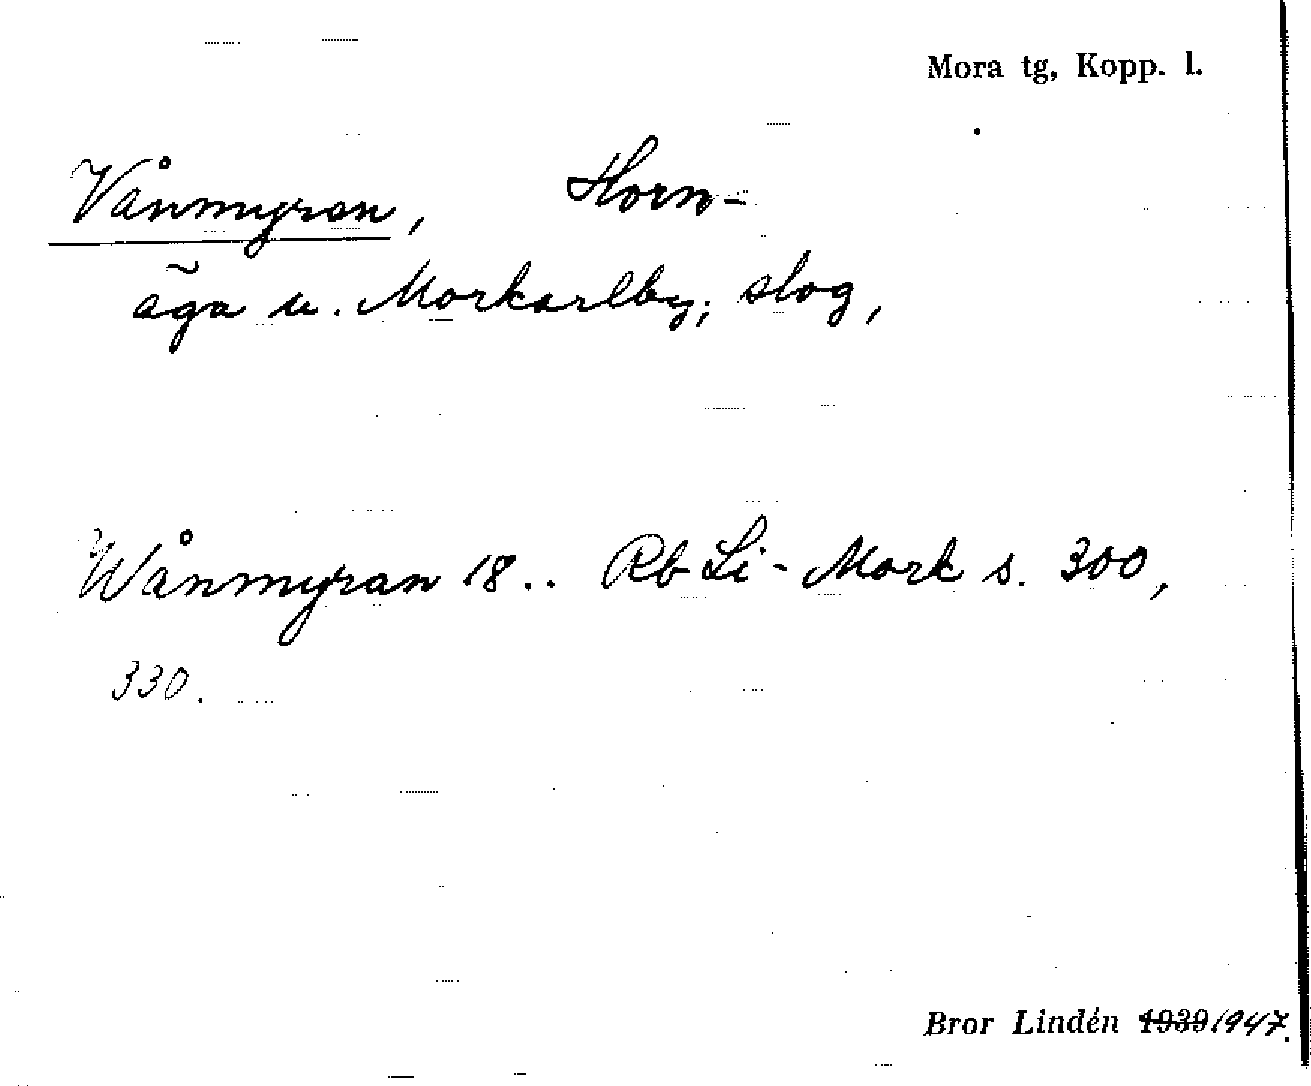 Mora tg, Kopp. l.
Vånmyran, Horn-
äga u. Morkarlby; slog,
Wånmyran 18.. Rb Li-Mork s. 300,
330.
Bror Lindén 1939 1947.